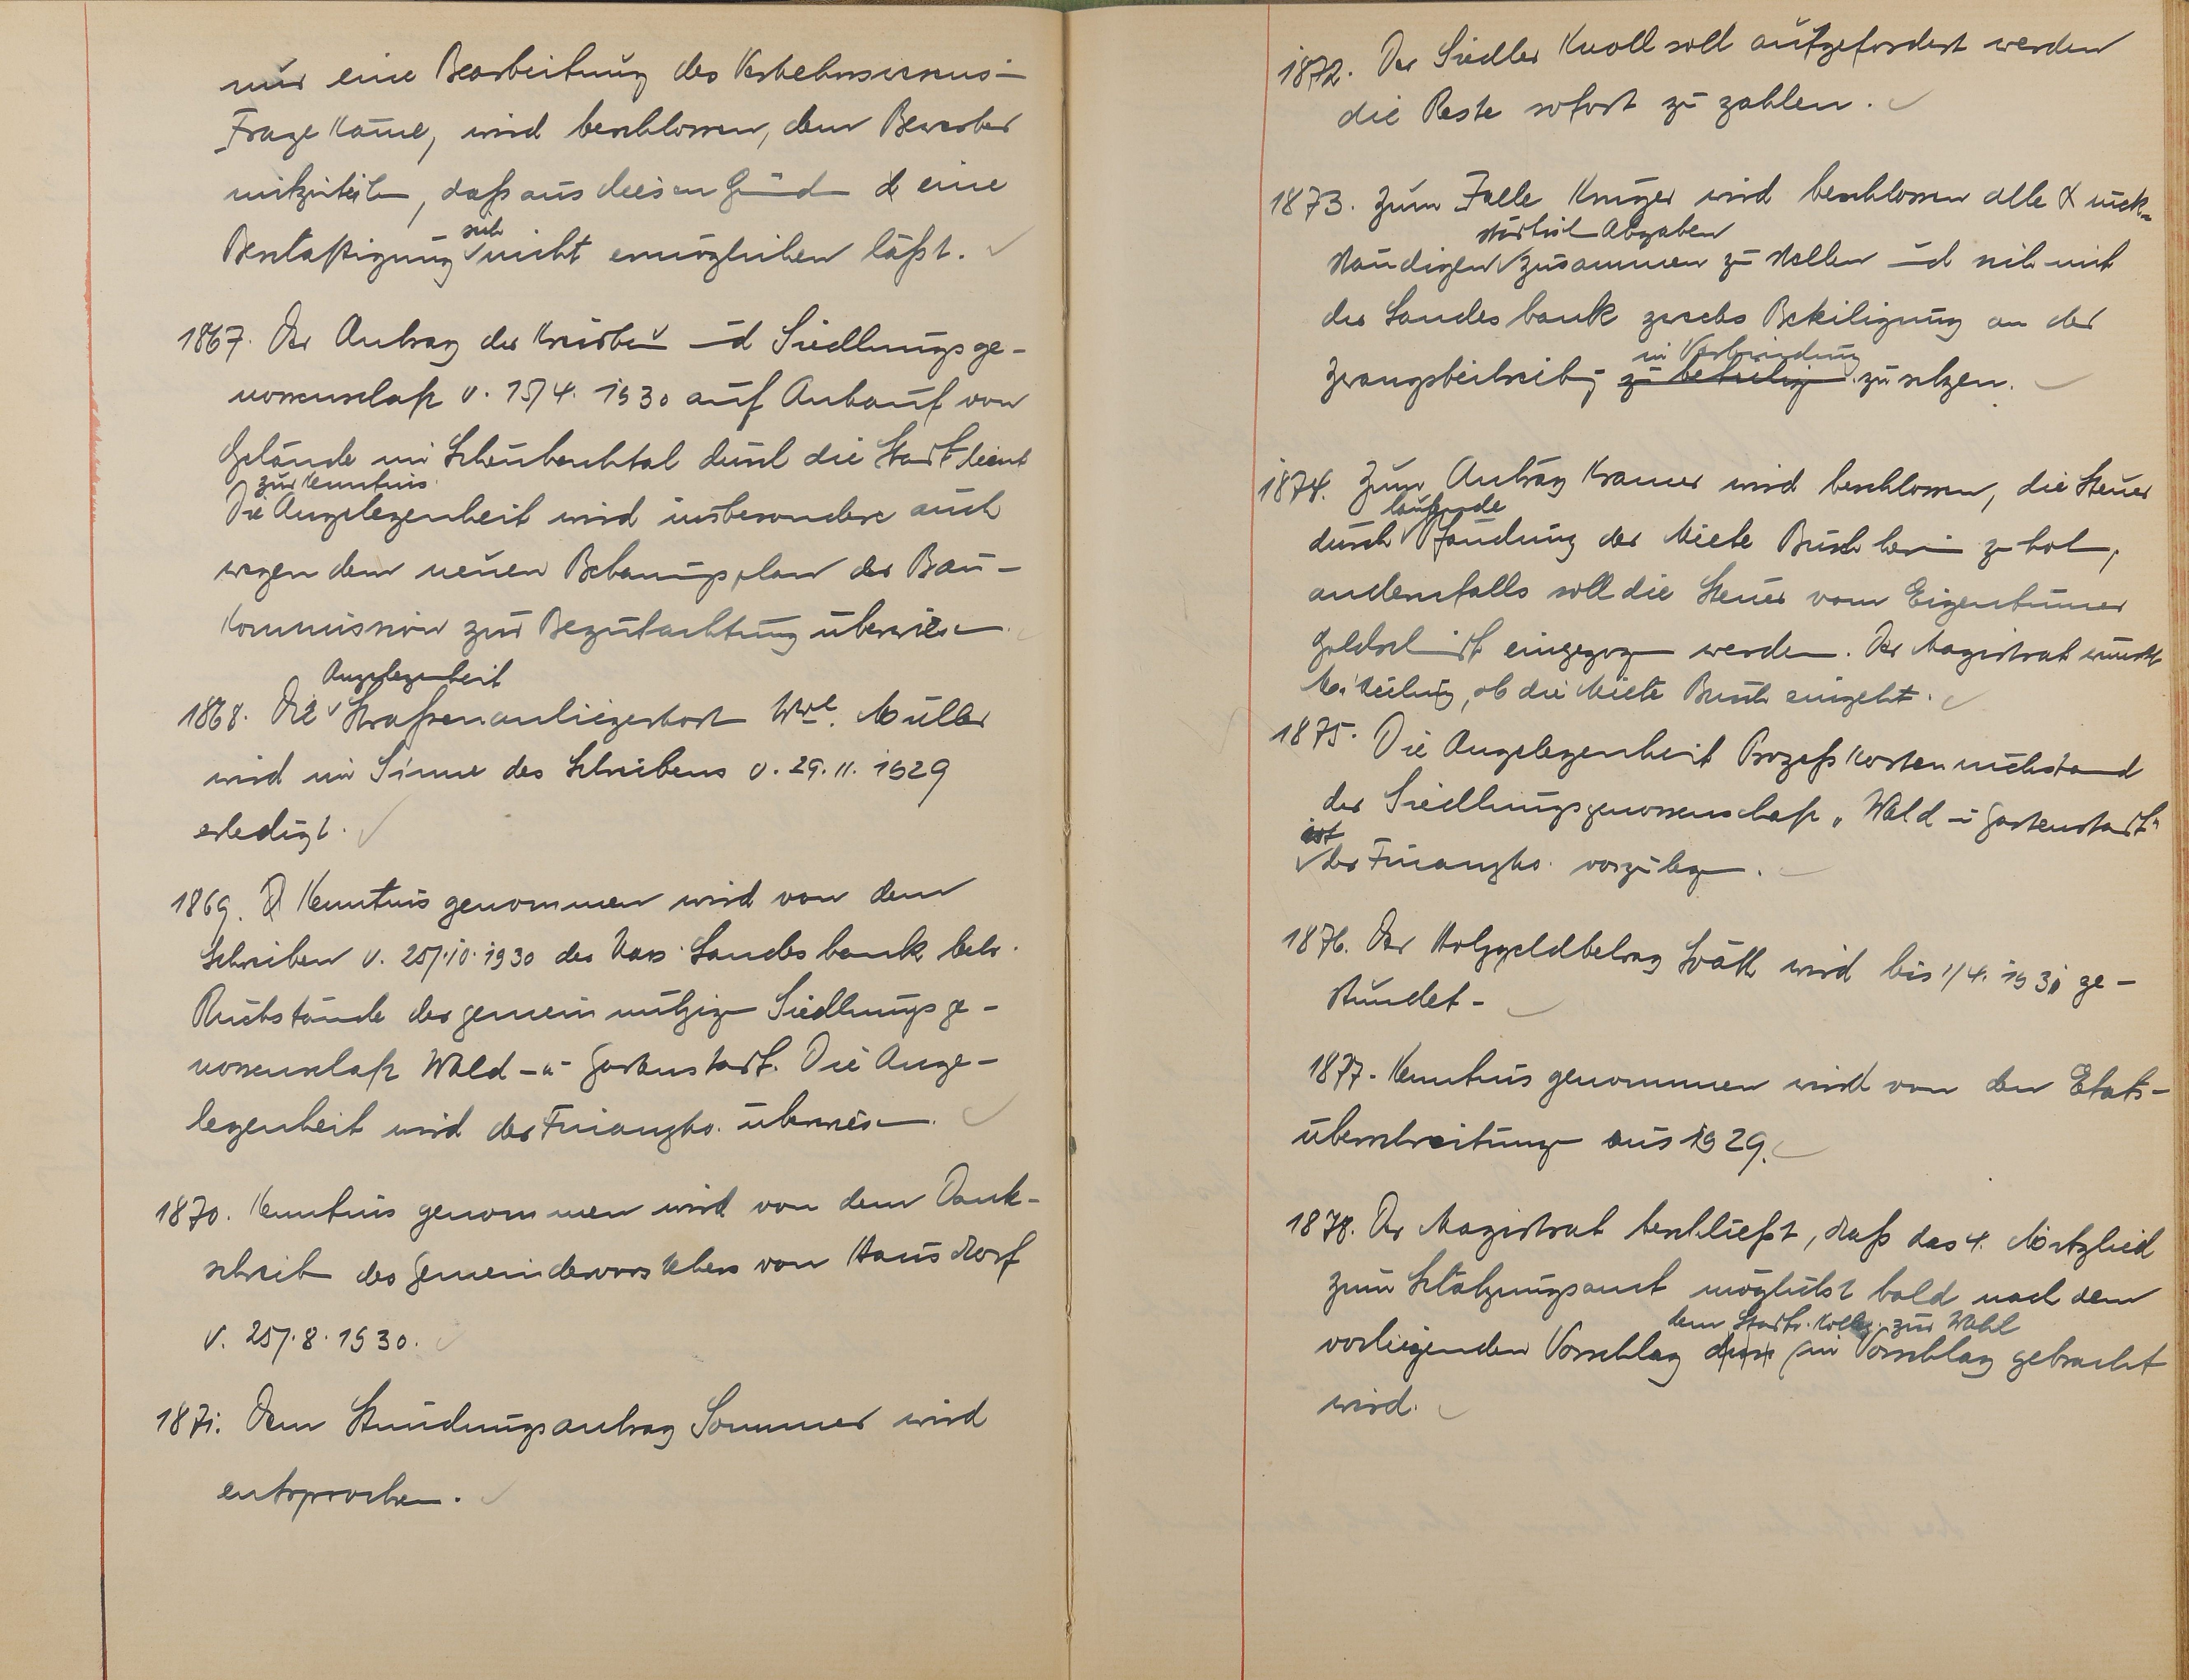 nur eine Bearbeitung des Verkehrswesens-
Frage käme, wird beschlossen, dem Bewerber
mitzuteilen, daß aus diesen Gründen eine
sich
Berücksichtigung nicht ermöglichen läßt.
1867. Der Antrag der und Siedlungsge-
nossenschaft v. 15/4. 1930 auf Ankauf von
Gelände im durch die Stadt dient
zur Kenntnis.
Die Angelegenheit wird insbesondere auch
wegen dem neuen Bebauungsplan der Bau-
Kommission zur Begutachtung überwiesen.
Angelegenheit
1868. Die Straßenanliegerkosten Wwe. Müller
wird im Sinne des Schreibens v. 29.11.1929
erledigt.
1869. Kenntnis genommen wird von dem
Schreiben v. 25/.10.1930 der Nass. Landesbank betr.
Rückstände der gemeinnützigen Siedlungsge-
nossenschaft Wald- u. Gartenstadt. Die Ange-
legenheit wird der Finanzko. überwiesen.
1870. Kenntnis genommen wird von dem Dank-
schreiben des Gemeindevorstehers von Hausdorf
v. 25/.8.1930.
1871. Dem Stundungsantrag Sommer wird
entsprochen.
1872. Der Siedler Knoll soll aufgefordert werden
die Reste sofort zu zahlen.
1873. Zum Falle Krüger wird beschlossen alle rück-
städtischen Abgaben
ständigen zusammen zu stellen und sich mit
der Landesbank zwecks Beteiligung an der
in Verbindung
Zwangsbeitreibung zu beteiligen zu setzen.
1874. Zum Antrag Kramer wird beschlossen, die Steuer
laufende
durch Pfändung der Miete Busch herein zu holen,
andernfalls soll die Steuer vom Eigentümer
Goldschmidt eingezogen werden. Der Magistrat wünscht
Mitteilung, ob die Miete Busch eingeht.
1875. Die Angelegenheit Prozeßkostenrückstand
der Siedlungsgenossenschaft „Wald- u. Gartenstadt"
ist
der Finanzko. vorzulegen.
1876. Der Holzgeldbetrag wird bis 1/4. 1931 ge-
stundet-
1877. Kenntnis genommen wird von den Etats-
überschreitungen aus 1929.
1878. Der Magistrat beschließt, daß das 4. Mitglied
zum Schätzungsamt möglichst bald nach dem
dem Stadtv. Kolleg. zur Wahl
vorliegenden Vorschlag in Vorschlag gebracht
wird.